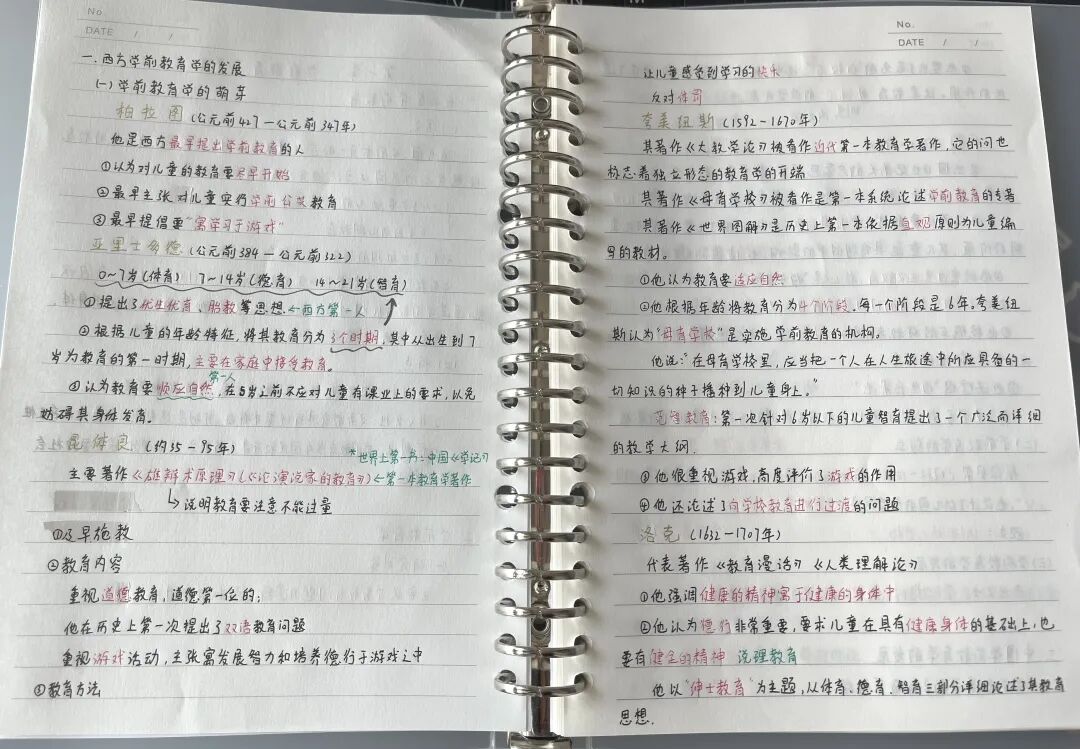 No.
DATE / /
一.西方学前教育学的发展
(一)学前教育学的萌芽
柏拉图(公元前427—公元前347年)
他是西方最早提出学前教育的人
①认为对儿童的教育要尽早开始
②最早主张对儿童实行学前公共教育
③最早提倡要"寓学习于游戏"
亚里士多德(公元前384—公元前322)
0~7岁(体育) 7~14岁(德育) 14~21岁(智育)
①提出了优生优育、胎教等思想←西方第一人
②根据儿童的年龄特征,将其教育分为3个时期,其中从出生到7
岁为教育的第一时期,主要在家庭中接受教育。
第一人
③认为教育要顺应自然,在5岁之前不应对儿童有课业上的要求,以免
妨碍其身体发育。
昆体良(约35—95年)
*世界上第一书:中国《学记》
主要著作《雄辩术原理》(《论演说家的教育》)←第一本教育学著作
↳说明教育要注意不能过量
①及早施教
②教育内容
重视道德教育,道德第一位的;
他在历史上第一次提出了双语教育问题
重视游戏活动,主张寓发展智力和培养德行于游戏之中
③教育方法
No.
DATE / /
让儿童感受到学习的快乐
反对体罚
夸美纽斯(1592—1670年)
其著作《大教学论》被看作近代第一本教育学著作,它的问世
标志着独立形态的教育学的开端
其著作《母育学校》被看作是第一本系统论述学前教育的专著
其著作《世界图解》是历史上第一本依据直观原则为儿童编
写的教材。
①他认为教育要适应自然
②他根据年龄将教育分为4个阶段,每一个阶段是6年。夸美纽
斯认为"母育学校"是实施学前教育的机构。
他说:"在母育学校里,应当把一个人在人生旅途中所应具备的一
切知识的种子播种到儿童身上。"
教育:第一次针对6岁以下的儿童智育提出了一个广泛而详细
的教学大纲.
③他很重视游戏,高度评价了游戏的作用
④他还论述了向学校教育进行过渡的问题
洛克(1632—1707年)
代表著作《教育漫话》《人类理解论》
①他强调健康的精神寓于健康的身体中
②他认为德行非常重要,要求儿童在具有健康身体的基础上,也
要有健全的精神 说理教育
他以"绅士教育"为主题,从体育、德育、智育三部分详细论述了其教育
思想.